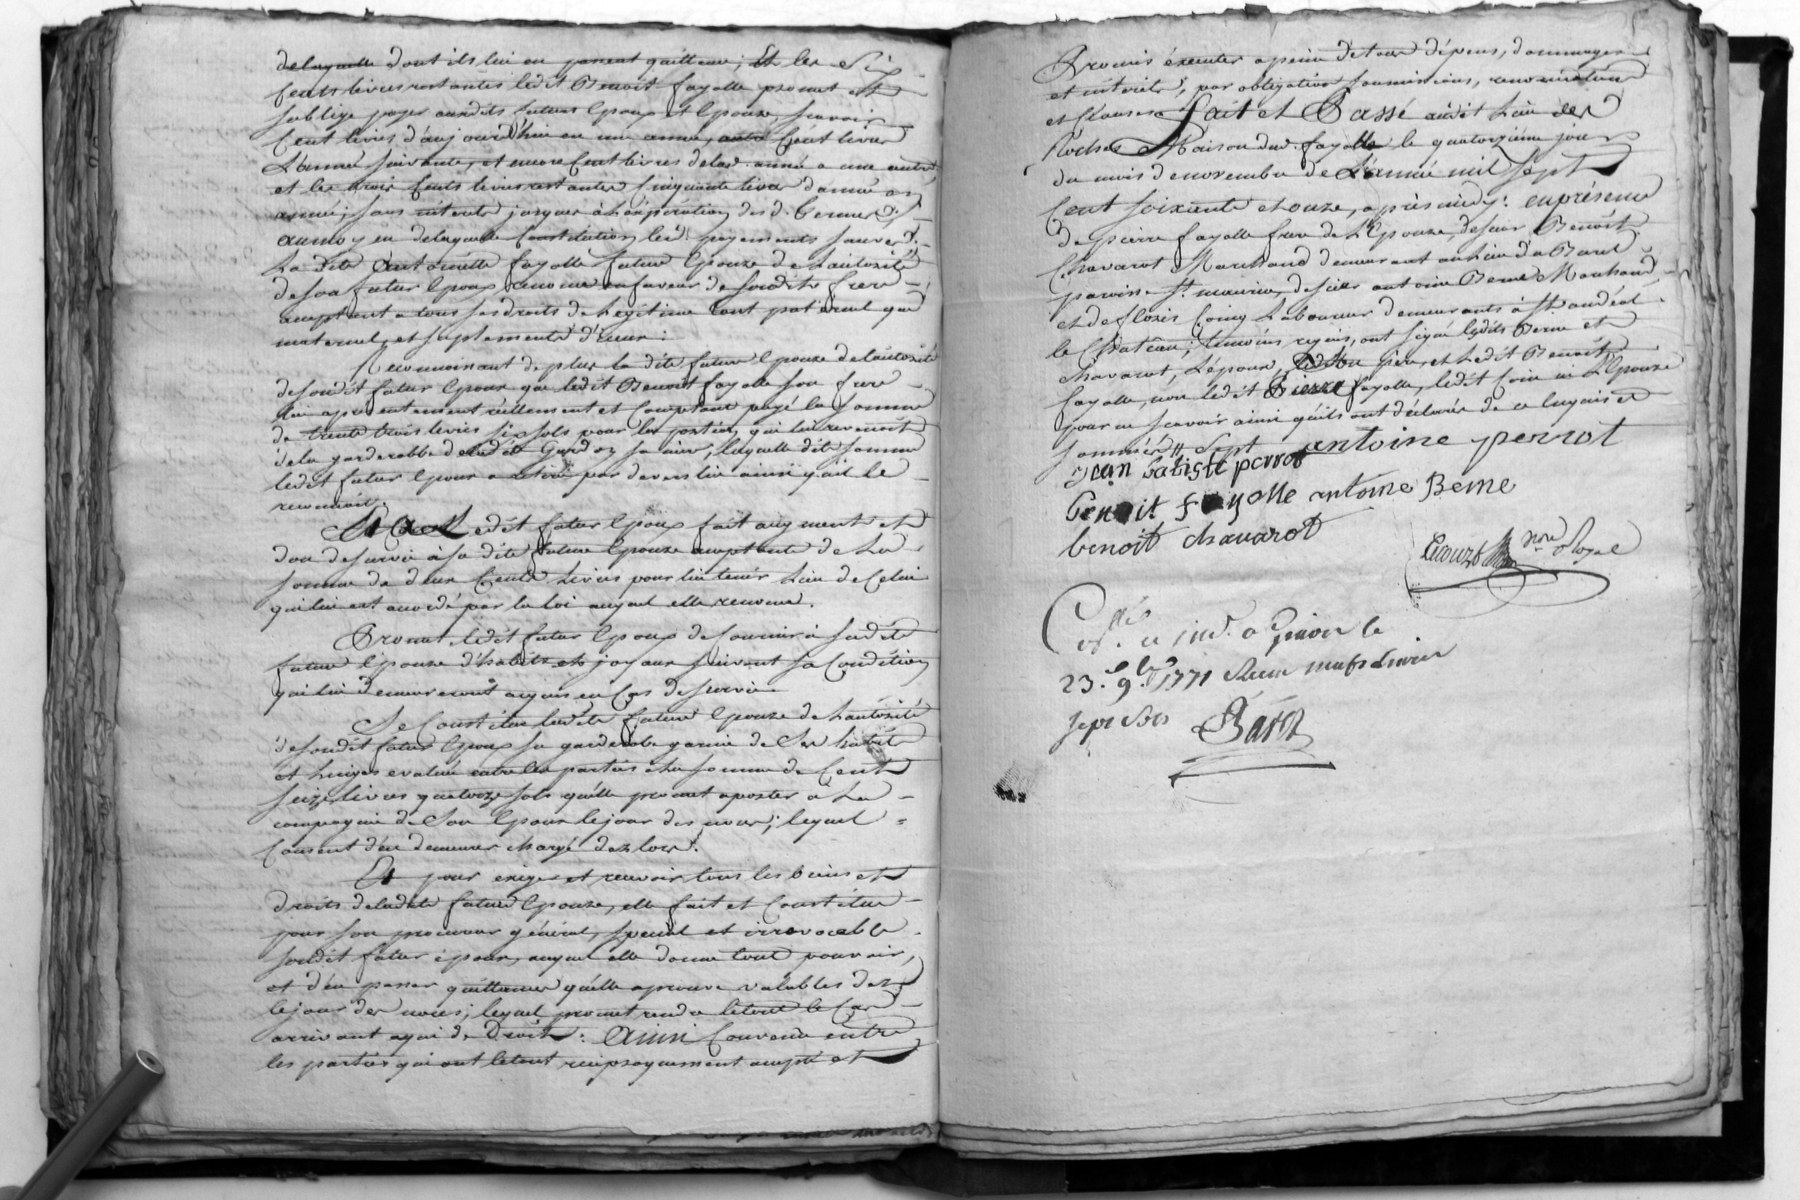 delaquelle dont ils lui en passent quittance; Et les Six
Cents livres restantes ledit Benoit fayolle promet et
soblige payer auxdits futurs Epoux et Epouze, scavoir
Cent livres d'aujourd'hui en une année, autre Cent livres
L'année suivante, et encore Cent livres delad. année a une autre
et les trois Cents livres restantes Cinquante livres d'année en
année, sans interets jusques à l'expiration des d. termes;
au moyen delaquelle Constitution, led. payements
La dite Antoinette fayolle future Epouze de l'autorité
de son futur Epoux renonce en faveur de sondit frere
acceptant a tous ses droits de Légitime tant paternel que
maternel, et suplements d'Iceux:
Reconnoissant de plus la dite future Epouze de l'autorité
desondit futur Epoux que ledit Benoit fayolle son frere
lui a présentement réellement et Comptant payé la somme
de trente trois livres six sols pour la portion qui lui revenoit
dela garderobbe de ladite Gardon sa mere, laquelle dite somme
ledit futur Epoux a retiré par devers lui ainsi qu'il le
reconnoit.
Et a Ledit futur Epoux fait augment et
don de survie à sa dite future Epouze acceptante de La
somme de deux Cents Livres pour lui tenir Lieu de Celui
qui lui est accordé par la loi auquel elle renonce.
Promet ledit futur Epoux de fournir à sadite
future Epouze d'habits et joyaux suivant sa Condition
qui lui demeureront acquis en Cas de survie.
Se Constitue ladite future Epouze de L'autorité
de sondit futur Epoux sa garderobe garnie de Ses habits
et Linges evalué entre les parties à la somme de Cent
seize livres quatorze sols qu'elle promet aporter à La
compagnie de Son Epoux le jour des noces; lequel
Consent d'en demeurer chargé dez lors.
Et pour exiger et recevoir tous les biens et
droits deladite future Epouze, elle fait et Constitue
pour son procureur général, special et irrevocable
sondit futur époux, auquel elle donne tout pouvoir,
et d'en passer quittances qu'elle aprouve valables dez
le jour des noces; lequel promet rendre le tout le Cas
arrivant a qui de Droit. Ainsi Convenu entre
les parties qui ont letout reciproquement accepté et
Promis éxecuter a peine de tous dépens, dommages
et intérêts, par obligation, soumissions, renonciations
et Clauses Fait et Passé audit Lieu des
Roches Maison dud. fayolle le quatorzieme jour
du mois de novembre de L'année mil Sept
Cent soixante et onze, après midy: en présence
de pierre fayolle frere de L'Epouze, de sieur Benoît
Chavarot Marchand demeurant au Lieu
paroisse St. maurice, de sieur antoine Berne Marchand
et de Laboureur demeurants à St. andéol
le Château; temoins requis, ont signé lesdits Berne et
Chavarot, L'époux, son pere, et Ledit Benoît
fayolle, non ledit Pierre fayolle, ledit ni L'Epouze
pour ne scavoir ainsi qu'ils ont déclarés de ce enquis et
sommés
antoine perrot
Jean batiste perrot
benoit fayolle antoine Berne
benoit chavarot
nre Royal
Collé et Insé. a Givors le
23. 9bre 1771 Recu neuf livres
sept sols